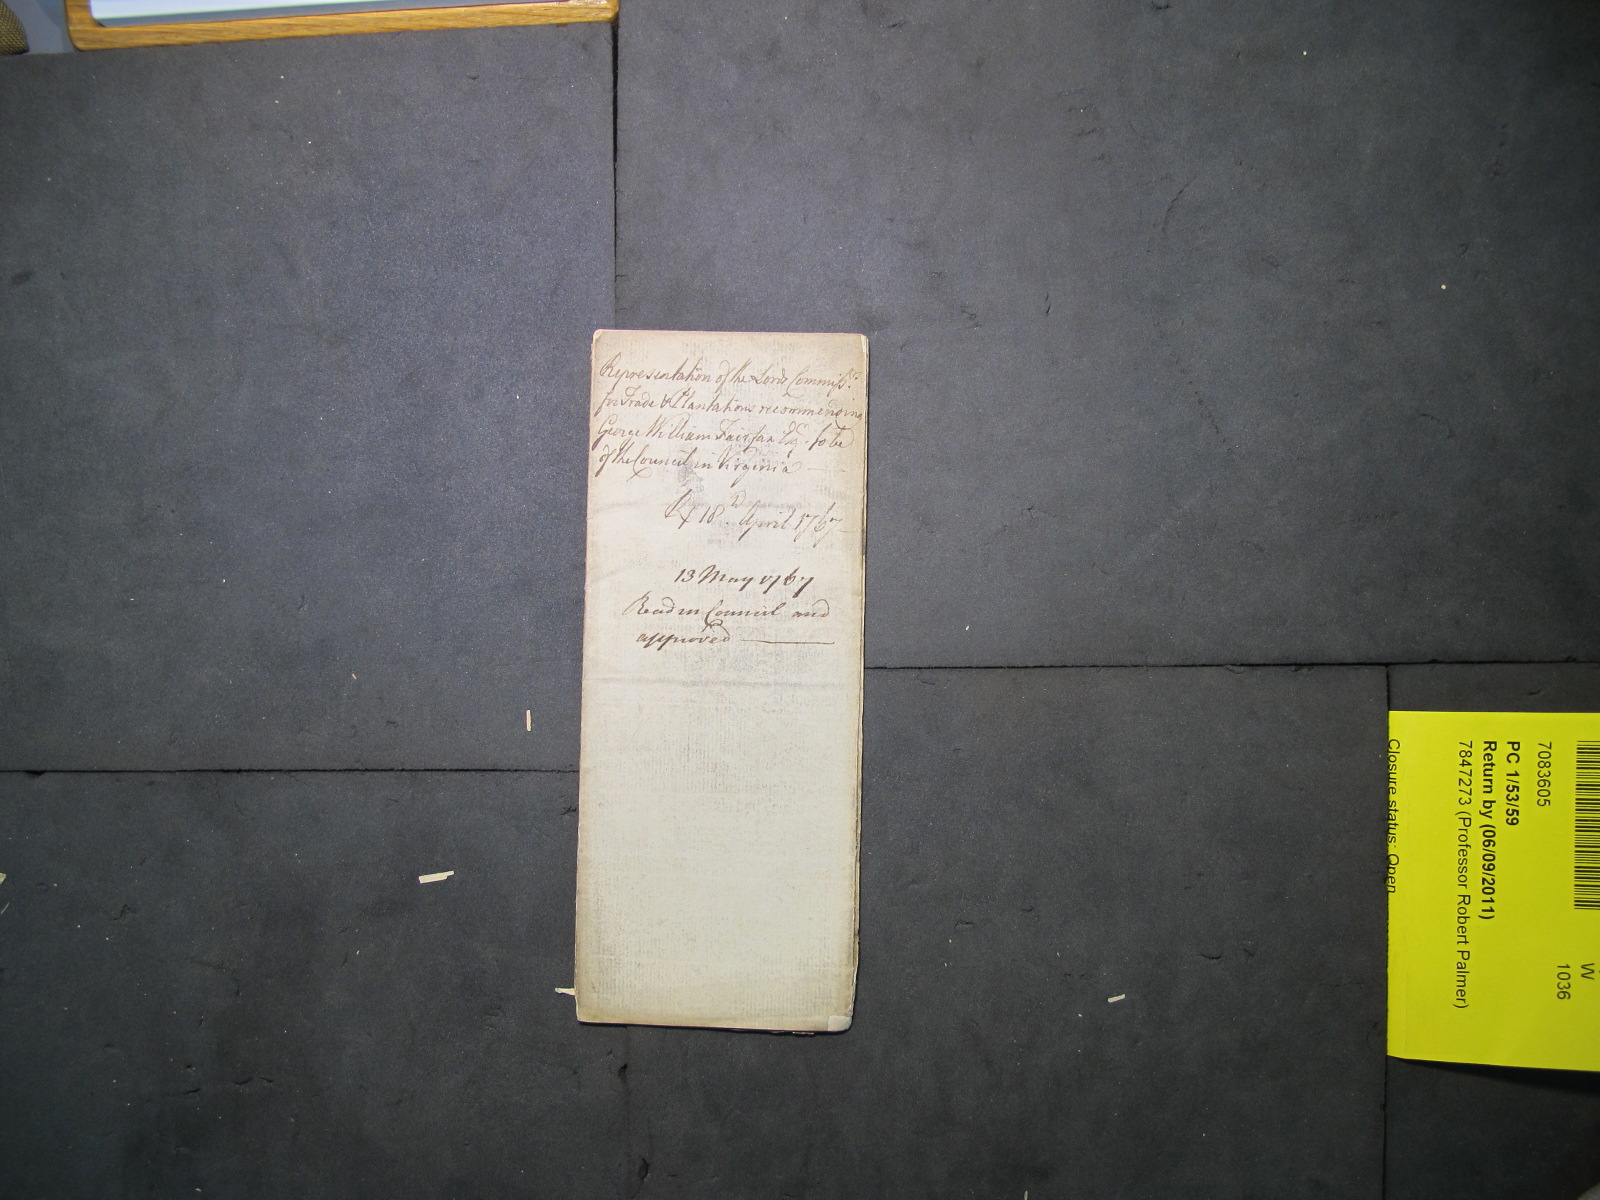 Representation of the Lords Commiss.rs
for Trade & Plantations recommending
George William Fairfax Esq.r to be
of the Council in Virginia
18.th April 1767
13 May 1767
Read in Council and
approved
7083605
PC 1/53/59
Return by (06/09/2011)
7847273 (Professor Robert Palmer)
Closure status: Open
W
1036